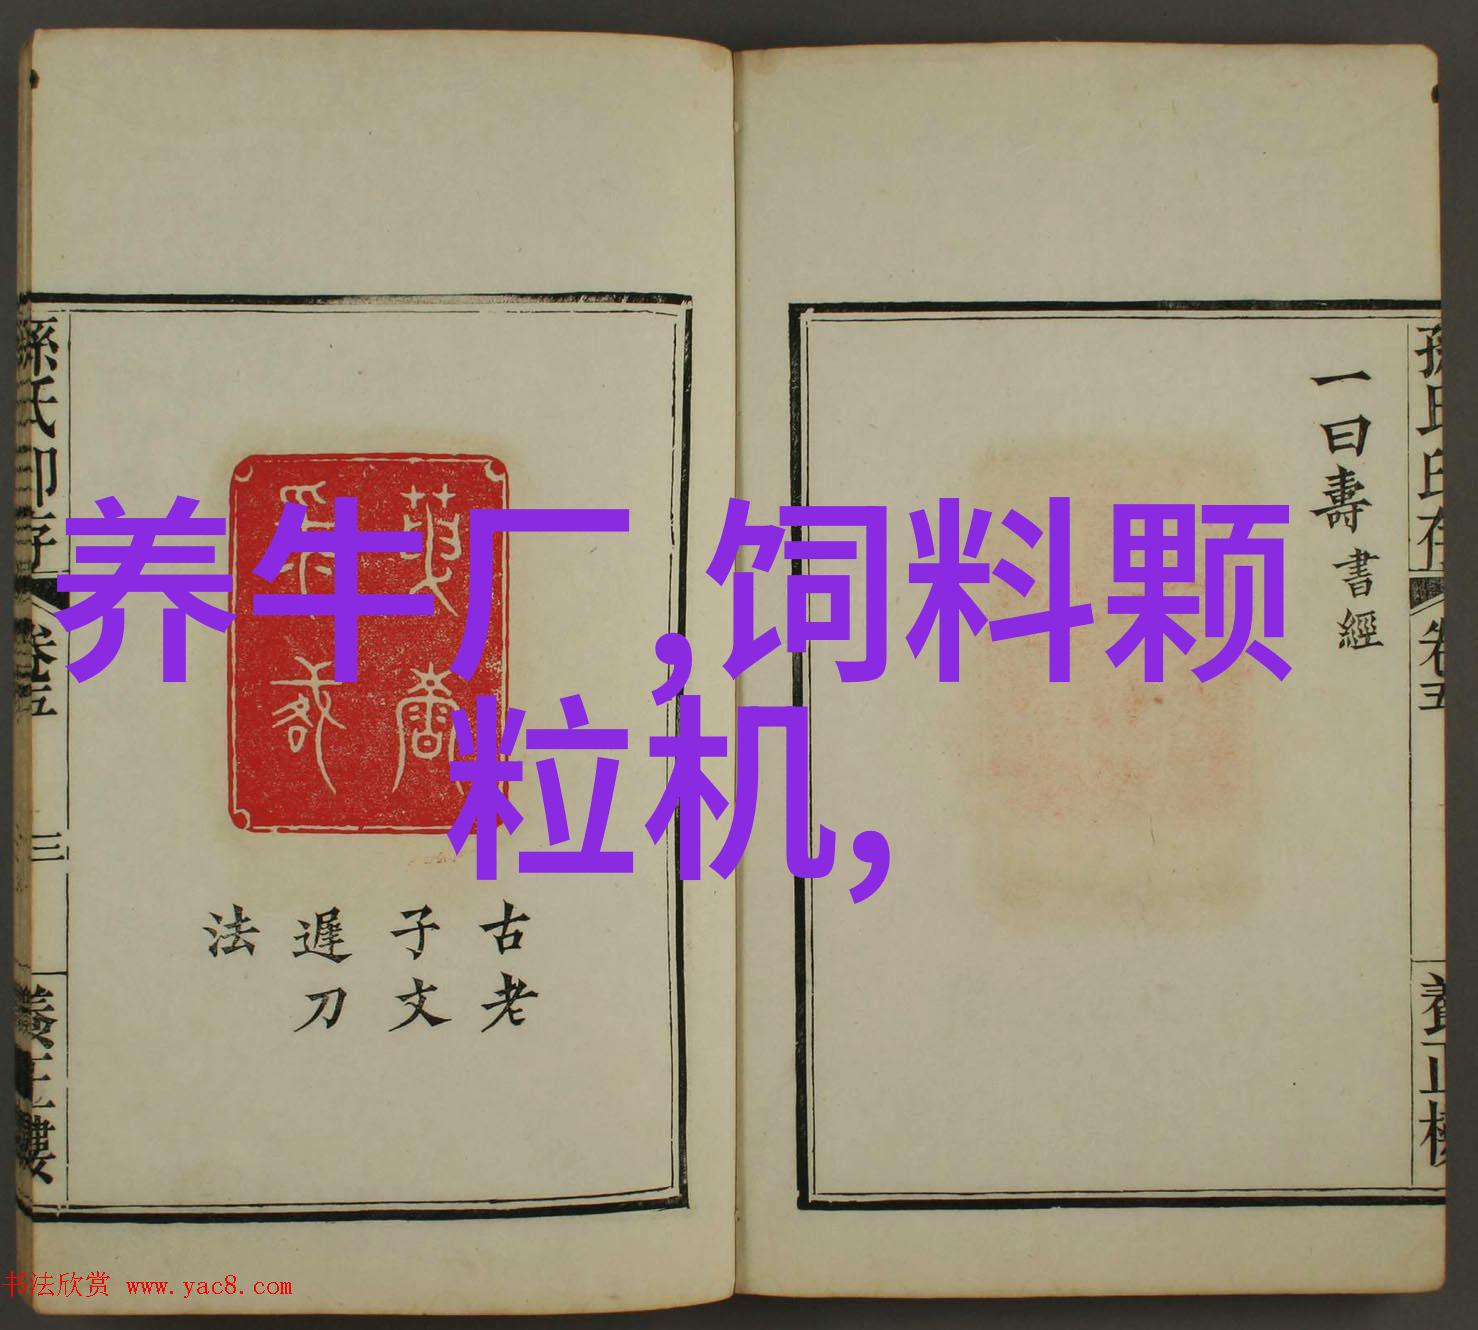 养牛厂,饲料颗
粒机,
孫氏印存
卷五
養正樓
一曰壽書經
孫氏印
卷五
三
養正樓
古老
子文
遲刀
法
书法欣赏 www.yac8.com